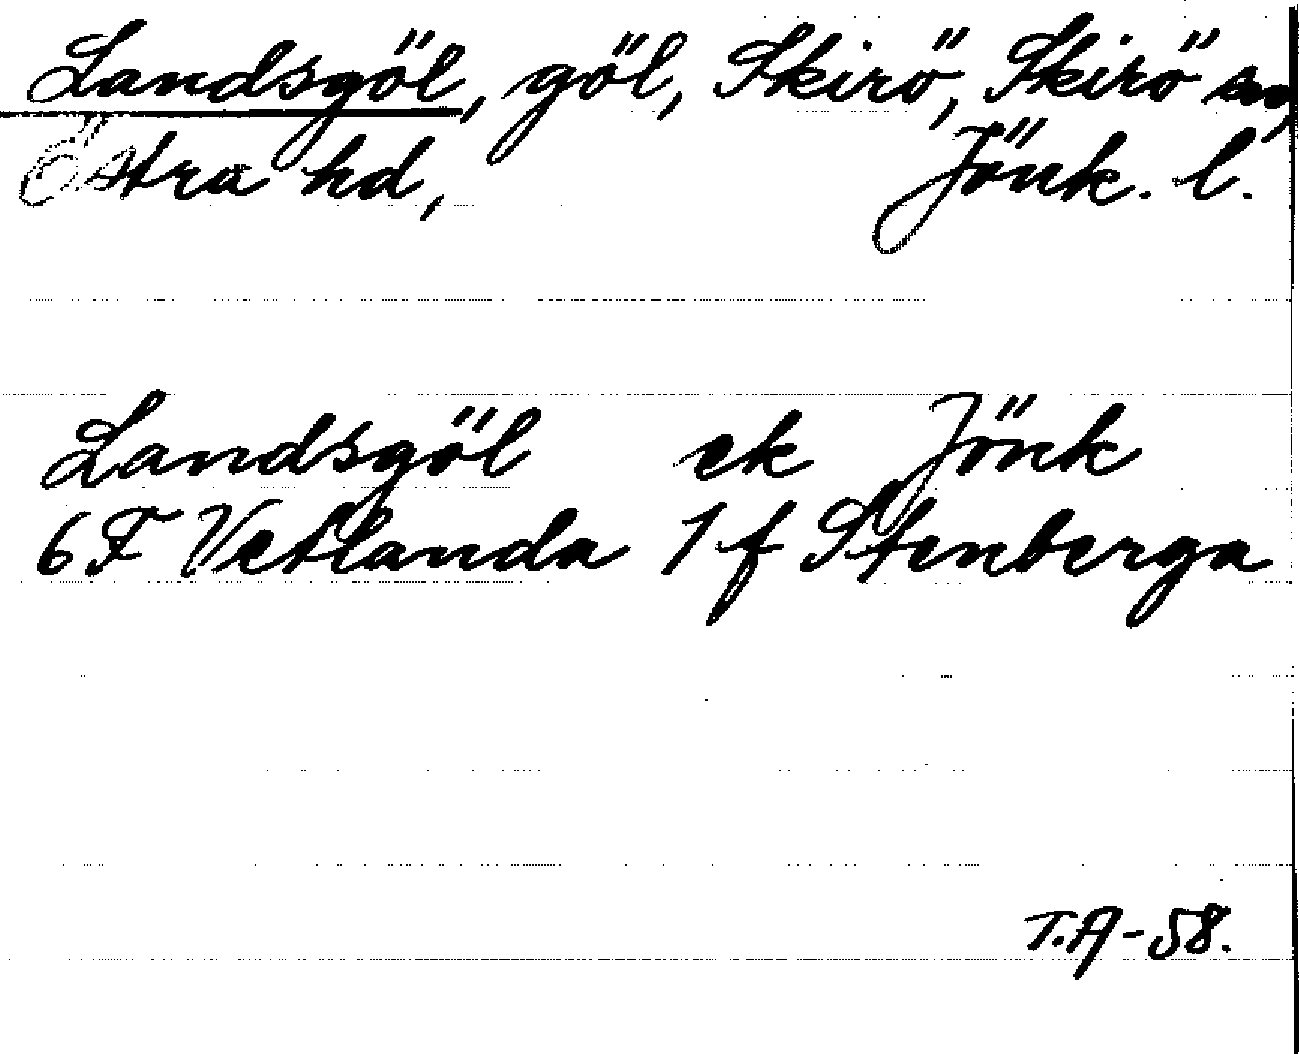 Landsgöl, göl, Skirö, Skirö sn,
Östra hd, Jönk. l.
Landsgöl ek Jönk
6F Vetlanda 1f Stenberga
T.A-58.